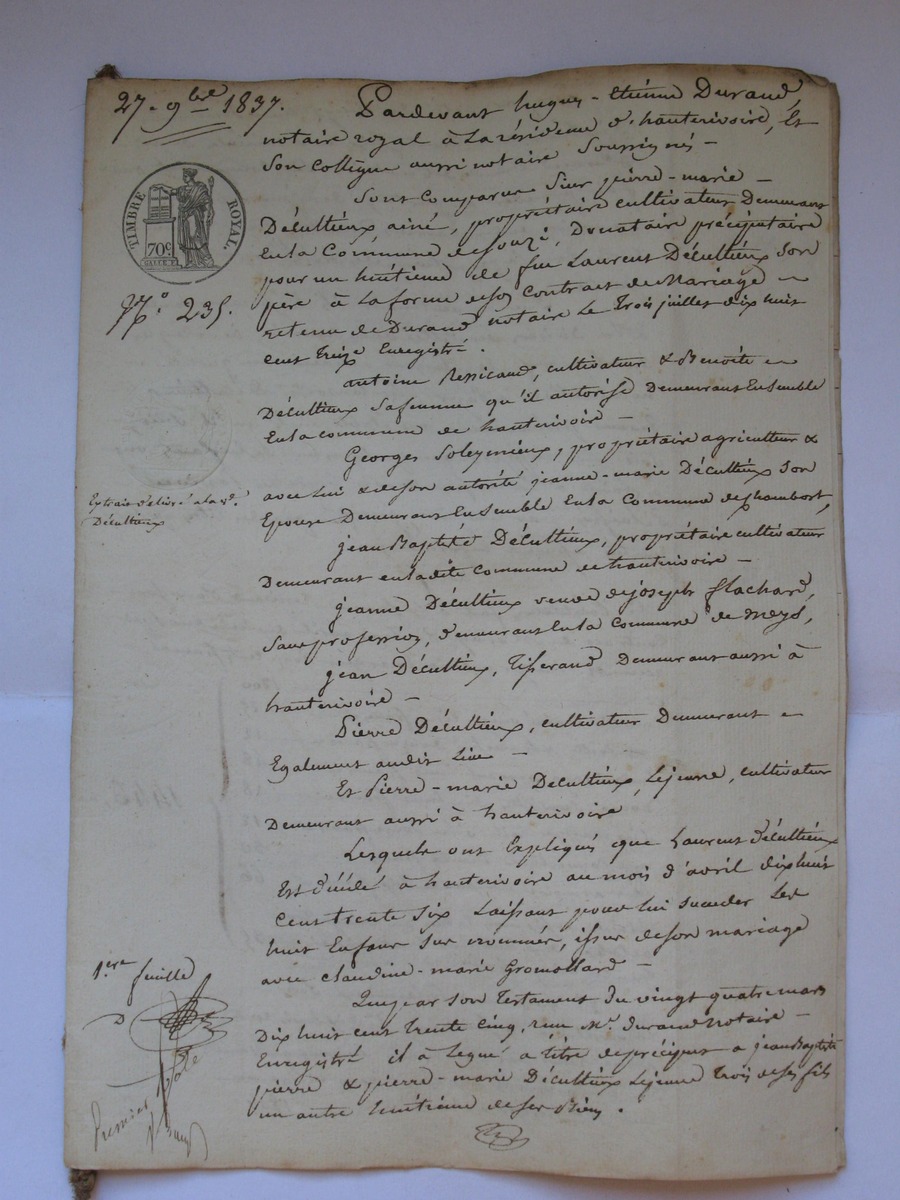 27. 9bre 1837.
TIMBRE ROYAL.
70c
N.o 235.
Extrait délivré à la ve.
Décultieux
1.ere feuille
Premier Rôle
Pardevant hugues-étienne Durand,
notaire royal à la résidence d'hauterivoire, Et
Son collègue aussi notaire Soussignés -
Sont Comparus Sieur pierre-marie -
Décultieux ainé, propriétaire cultivateur Demeurant
En la Commune de Souzi, Donataire préciputaire
pour un huitième de feu Laurent Décultieux Son
père à la forme de son Contrat de Mariage -
retenu de Durand notaire Le Trois juillet dix huit
cent Treize Enregistré.
antoine Ressicaud, cultivateur & Benoîte -
Décultieux Safemme qu'il autorise Demeurant Ensemble
En la commune de hauterivoire -
Georges Soleymieux, propriétaire agriculteur &
avec Lui & de son autorité jeanne-marie Décultieux Son
Epouse Demeurant Ensemble En la Commune de chambost,
jean Baptiste Décultieux, propriétaire cultivateur
Demeurant en ladite Commune de hauterivoire -
jeanne Décultieux veuve de joseph flachard,
Sans profession, demeurant En la Commune de meys,
jean Décultieux, Tisserand Demeurant aussi à
hauterivoire -
Pierre Décultieux, cultivateur Demeurant -
Egalement audit Lieu -
Et Pierre-marie Décultieux, Lejeune, cultivateur
Demeurant aussi à hauterivoire
Lesquels ont Expliqué que Laurent Décultieux
Est décédé à hauterivoire au mois d'avril dix huit
Cent trente Six Laissant pour lui succéder Les
huit Enfans Sus nommés, issus de son mariage
avec claudine-marie Gromollard -
Que par son Testament du vingt quatre mars
Dix huit cent trente cinq, reçu Me. durand Notaire -
Enregistré il à Legué à titre de préciput a jean Baptiste
pierre & pierre-marie Décultieux Lejeune Trois de ses fils
un autre huitième de ses Biens.